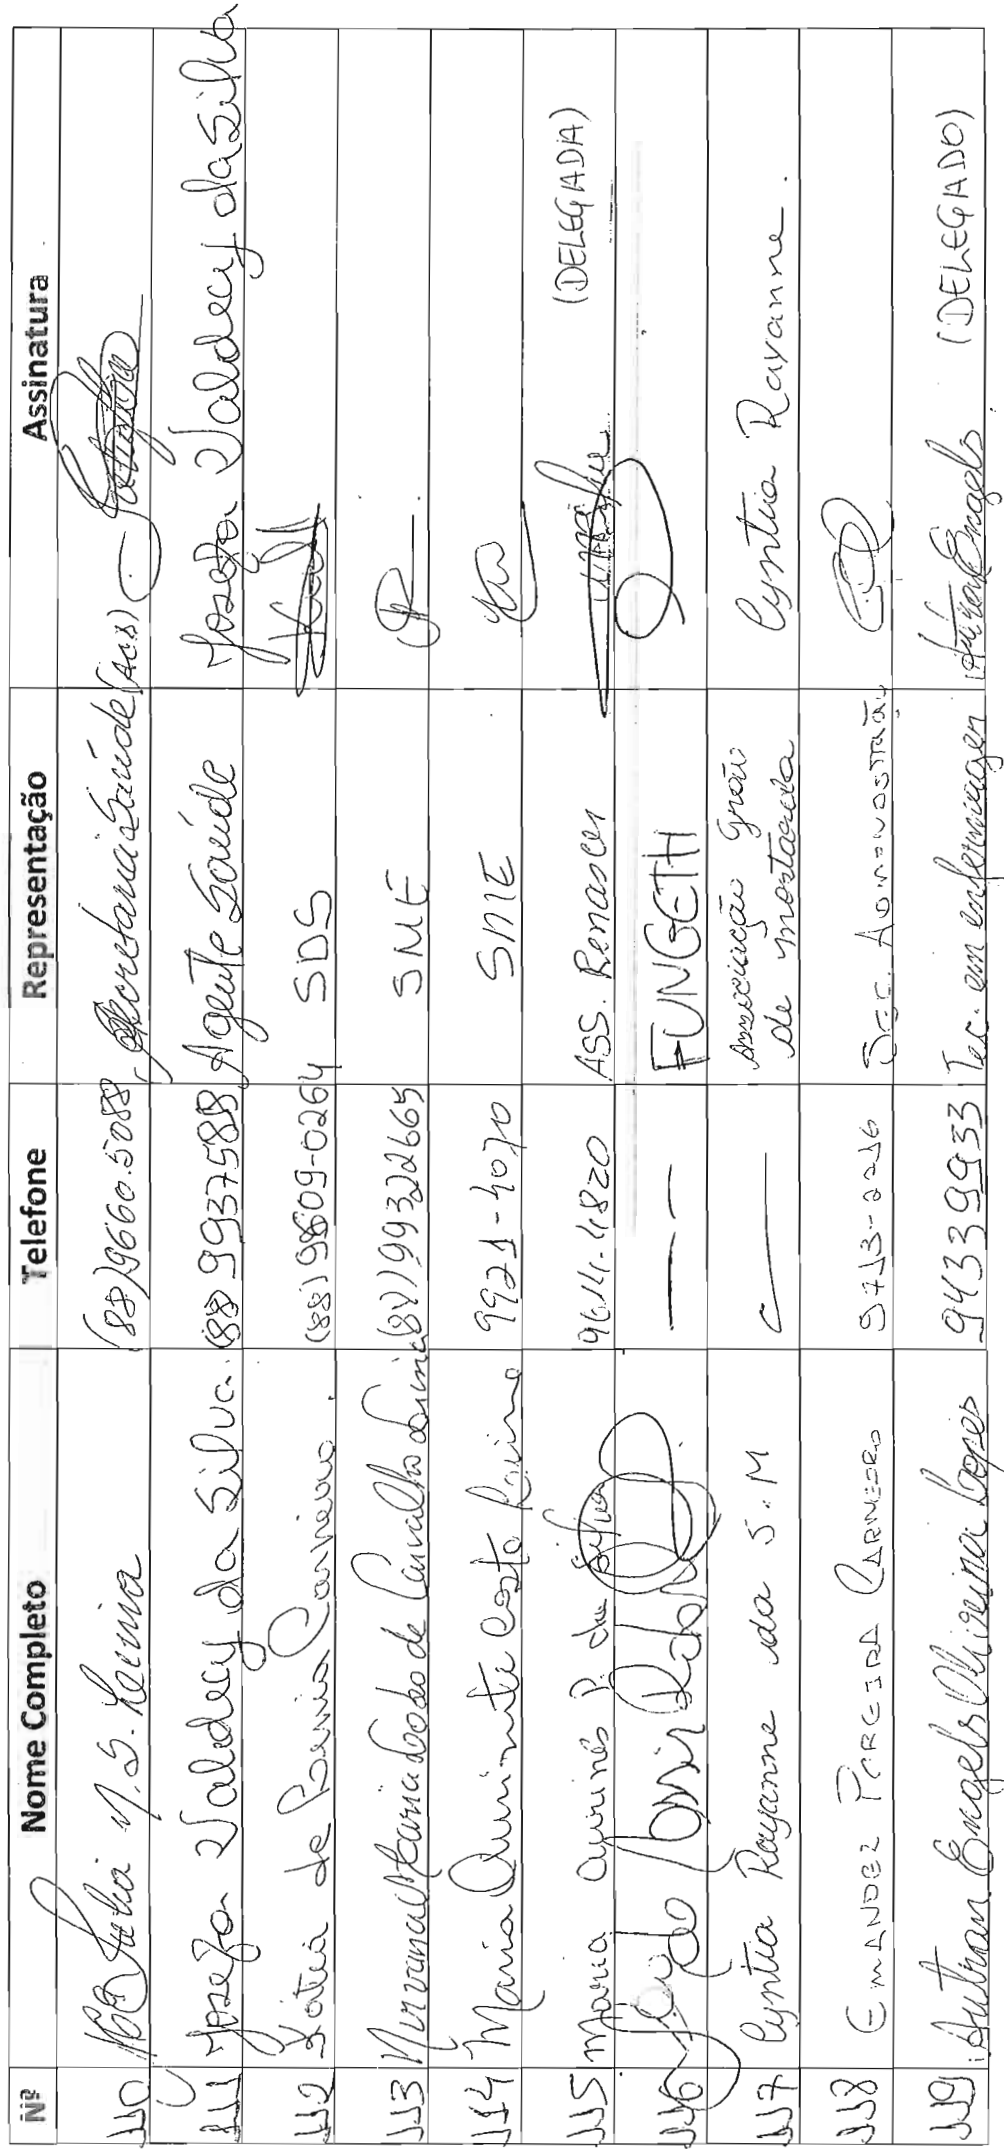 Nº Nome Completo Telefone Representação Assinatura
110 Julia N. S. Lenira (88)9660.5088 Secretaria Saúde (ACS)
111 Josefa Valdecy da Silva. (88 99937588 Agente Saúde Josefa Valdecy da Silva
112 Kátia de Carneiro (88) 98609-0264 SDS
113 Maria de Carvalho Lima (88) 99322665 SME
114 Maria Quirinete Costa 9921-4070 SME
115 Maria P. da Silva 9614.4820 ASS. Renascer (DELEGADA)
116 — — — FUNGETH
117 Cyntia Rayanne da S. M — Associação grão de mostarda Cyntia Rayanne.
118 EMANOEL PEREIRA CARNEIRO 9713-2216 SEC. ADMINISTRAÇÃO
119 Autran Engels Oliveira Lopes 94339933 Tec. em enfermagem Autran Engels (DELEGADO)